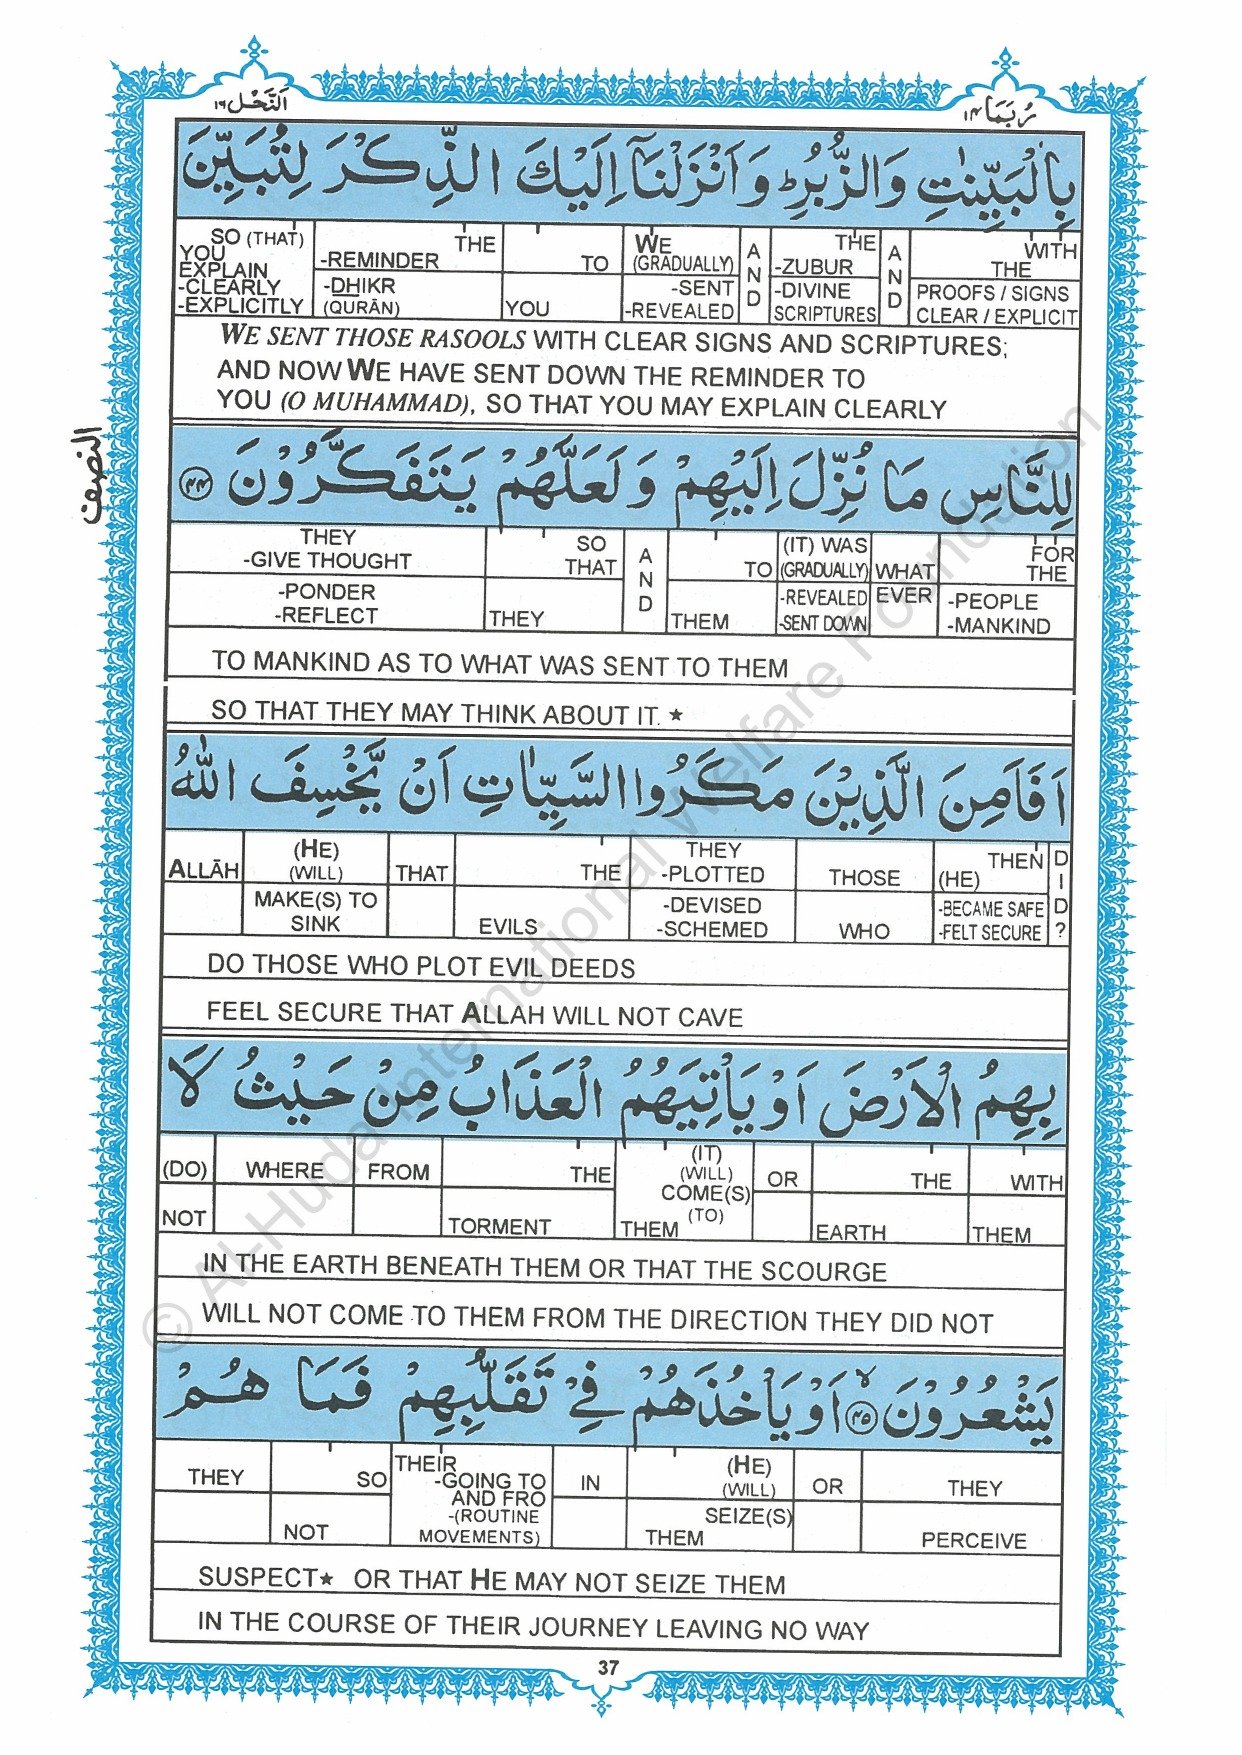 النَّحْل ١٦
رُبَمَا ١٤
بِالْبَيِّنٰتِ وَالزُّبُرِ ؕ وَاَنْزَلْنَاۤ اِلَيْكَ الذِّكْرَ لِتُبَيِّنَ
SO (THAT) YOU EXPLAIN -CLEARLY -EXPLICITLY | THE -REMINDER -DHIKR (QURĀN) | TO YOU | WE (GRADUALLY) -SENT -REVEALED | AND | THE -ZUBUR -DIVINE SCRIPTURES | AND | WITH THE PROOFS / SIGNS CLEAR / EXPLICIT
WE SENT THOSE RASOOLS WITH CLEAR SIGNS AND SCRIPTURES;
AND NOW WE HAVE SENT DOWN THE REMINDER TO
YOU (O MUHAMMAD), SO THAT YOU MAY EXPLAIN CLEARLY
النصف
لِلنَّاسِ مَا نُزِّلَ اِلَيْهِمْ وَلَعَلَّهُمْ يَتَفَكَّرُوْنَ ۴۴
THEY -GIVE THOUGHT -PONDER -REFLECT | SO THAT THEY | AND | TO THEM | (IT) WAS (GRADUALLY) -REVEALED -SENT DOWN | WHAT EVER | FOR THE -PEOPLE -MANKIND
TO MANKIND AS TO WHAT WAS SENT TO THEM
SO THAT THEY MAY THINK ABOUT IT. ★
اَفَاَمِنَ الَّذِيْنَ مَكَرُوا السَّيِّاٰتِ اَنْ يَّخْسِفَ اللّٰهُ
ALLĀH | (HE) (WILL) MAKE(S) TO SINK | THAT | THE EVILS | THEY -PLOTTED -DEVISED -SCHEMED | THOSE WHO | THEN (HE) -BECAME SAFE -FELT SECURE | DID?
DO THOSE WHO PLOT EVIL DEEDS
FEEL SECURE THAT ALLAH WILL NOT CAVE
بِهِمُ الْاَرْضَ اَوْ يَاْتِيَهُمُ الْعَذَابُ مِنْ حَيْثُ لَا
(DO) NOT | WHERE | FROM | THE TORMENT | (IT) (WILL) COME(S) (TO) THEM | OR | THE EARTH | WITH THEM
IN THE EARTH BENEATH THEM OR THAT THE SCOURGE
WILL NOT COME TO THEM FROM THE DIRECTION THEY DID NOT
يَشْعُرُوْنَ ۴۵ ۙ اَوْ يَاْخُذَهُمْ فِيْ تَقَلُّبِهِمْ فَمَا هُمْ
THEY | SO NOT | THEIR -GOING TO AND FRO -(ROUTINE MOVEMENTS) | IN | (HE) (WILL) SEIZE(S) THEM | OR | THEY PERCEIVE
SUSPECT★ OR THAT HE MAY NOT SEIZE THEM
IN THE COURSE OF THEIR JOURNEY LEAVING NO WAY
37
© Al-Huda International Welfare Foundation